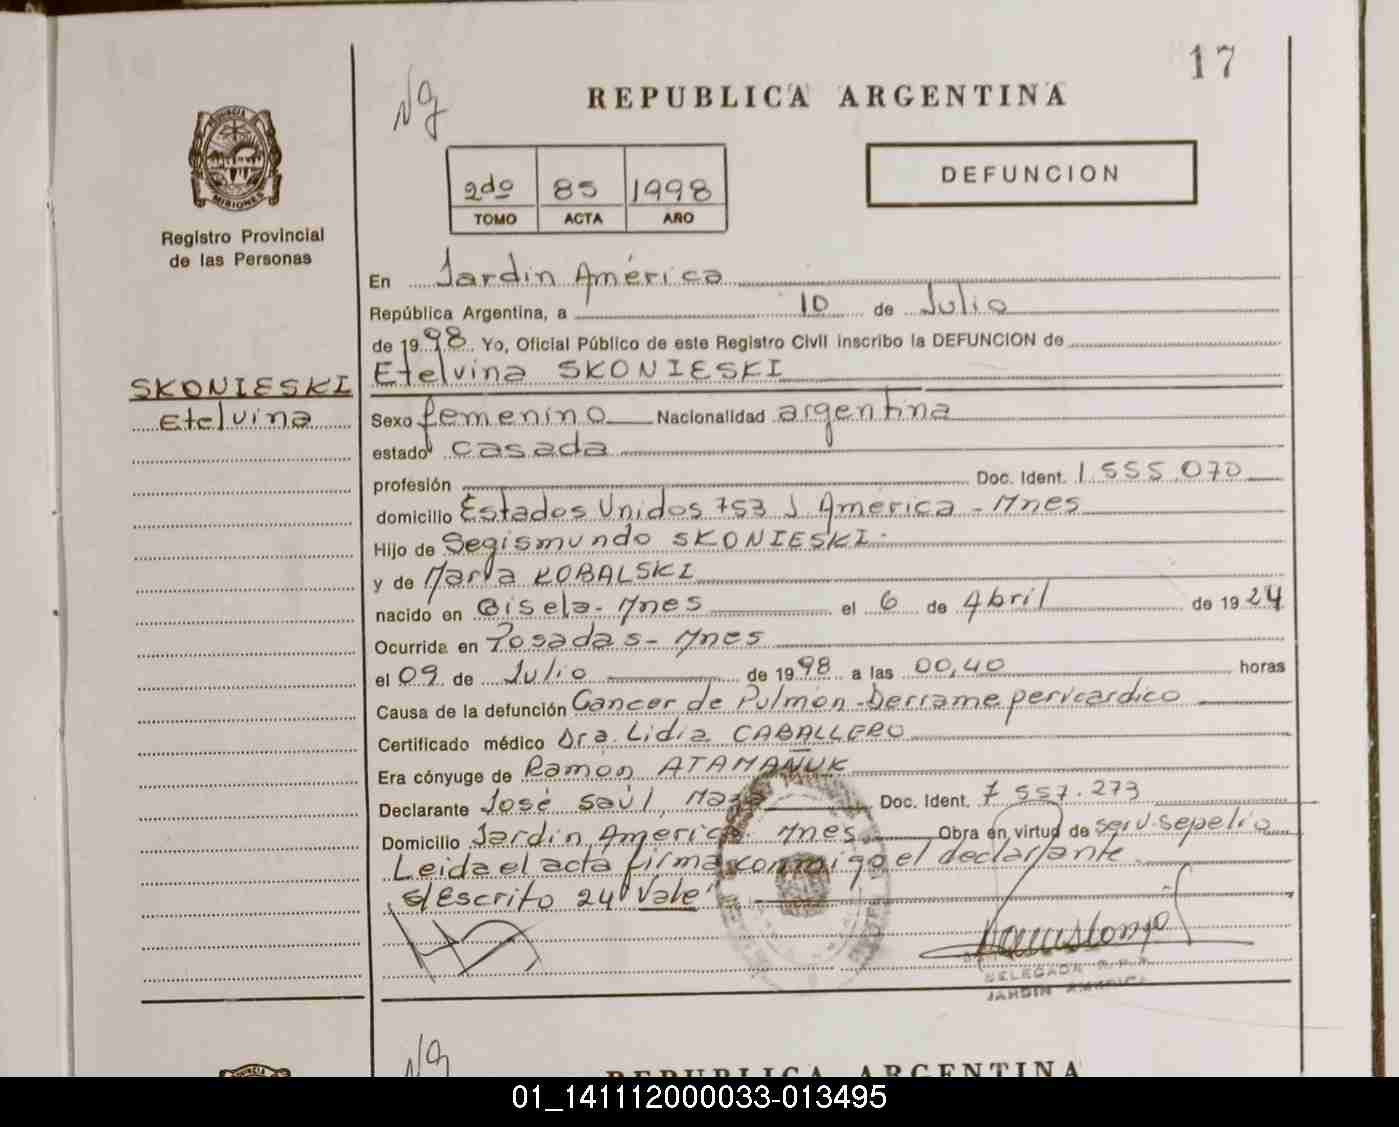 17
REPUBLICA ARGENTINA
PROVINCIA
MISIONES
Registro Provincial
de las Personas
2do 85 1998
TOMO ACTA AÑO
DEFUNCION
En Jardin América
República Argentina, a 10 de Julio
de 1998 Yo, Oficial Público de este Registro Civil inscribo la DEFUNCION de
Etelvina SKONIESKI
SKONIESKI
Etelvina
Sexo femenino Nacionalidad argentina
estado casada
profesión Doc. Ident. 1.555.070
domicilio Estados Unidos 753 J América - Mnes
Hijo de Segismundo SKONIESKI.
y de Maria KOBALSKI
nacido en Gisela - Mnes el 6 de Abril de 1924
Ocurrida en Posadas - Mnes
el 09 de Julio de 1998 a las 00,40 horas
Causa de la defunción Cancer de Pulmon - Derrame pericardico
Certificado médico Dra. Lidia CABALLERO
Era cónyuge de Ramón ATAMAÑUK
Declarante José Saúl, Doc. Ident. 7 557.273
Domicilio Jardin America. Mnes. Obra en virtud de serv. sepelio
Leida el acta firma conmigo el declarante
s/Escrito 24 "Vale"
DELEGADA R.P.P.
JARDIN AMERICA
REPUBLICA ARGENTINA
01_141112000033-013495